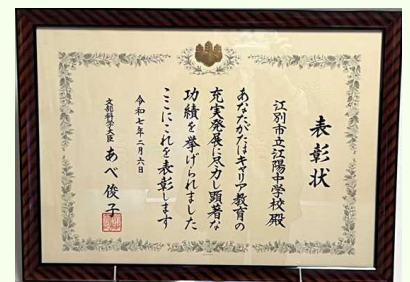 表彰状
江別市立江陽中学校殿
あなたがたはキャリア教育の
充実発展に尽力し顕著な
功績を挙げられました
ここにこれを表彰します
令和七年二月六日
文部科学大臣 あべ俊子